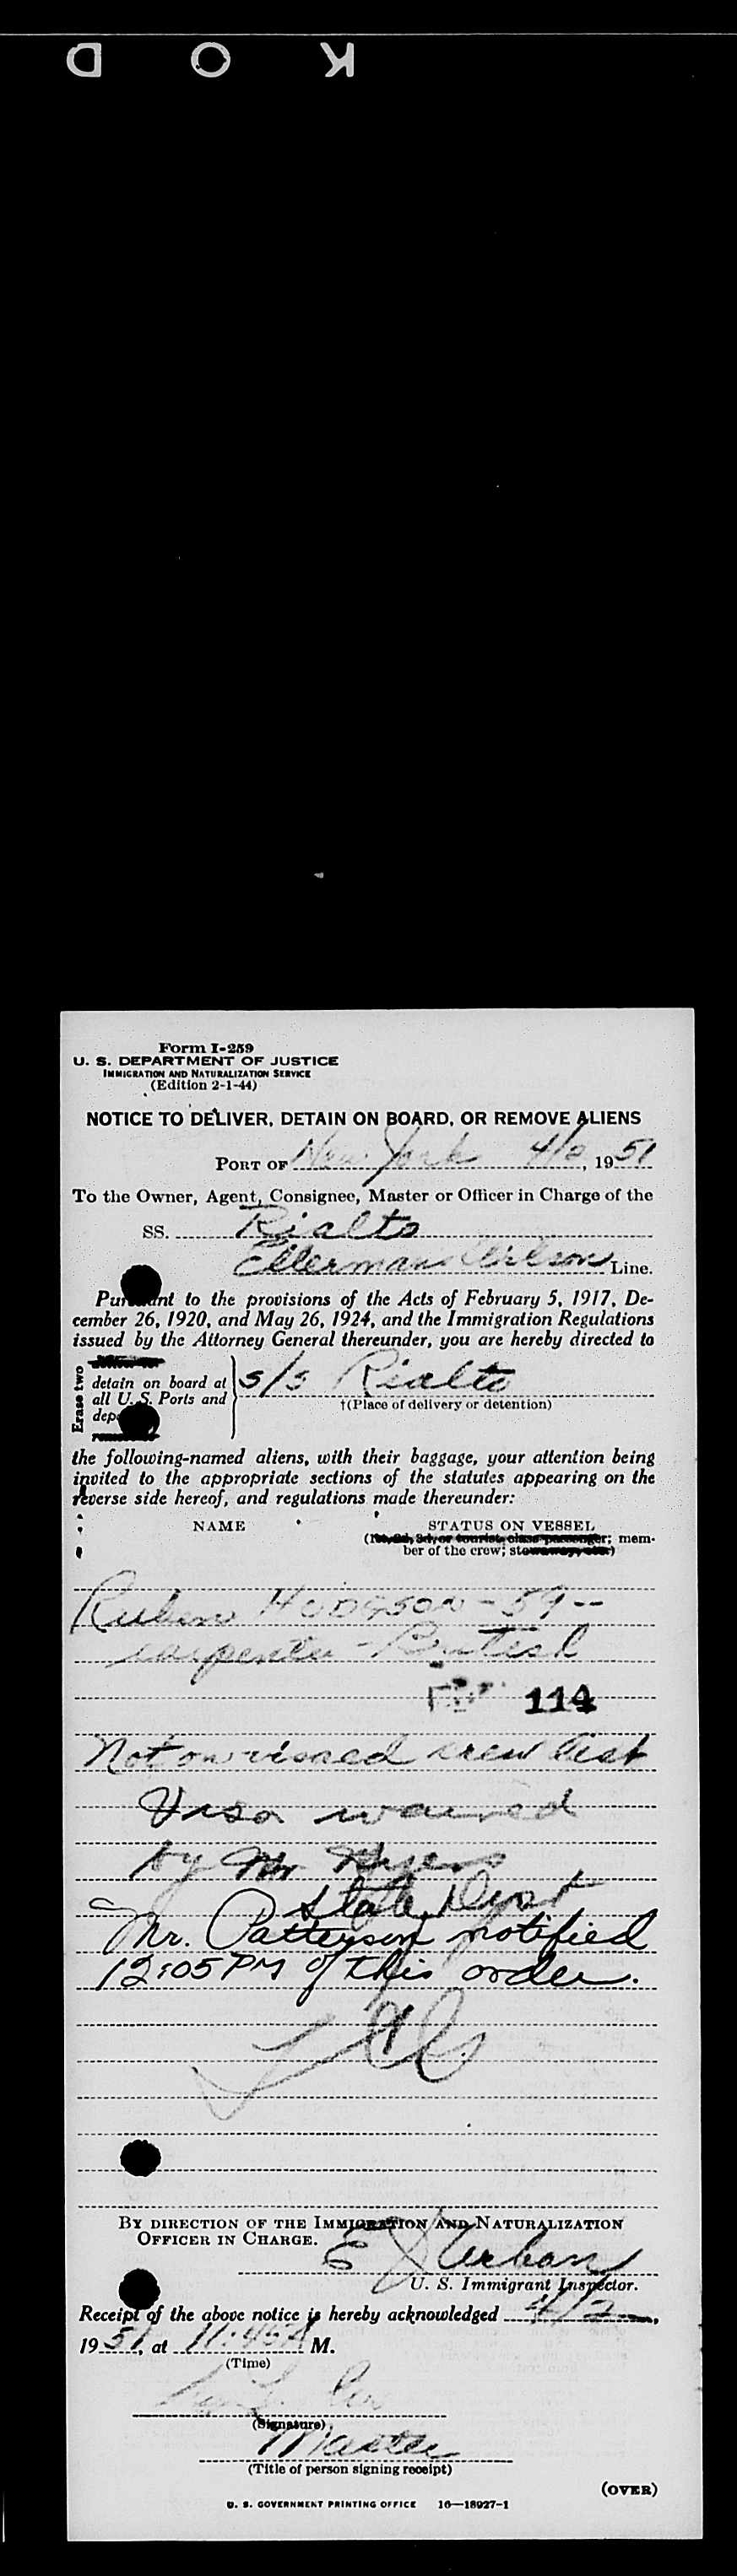 K O D
Form I-259
U. S. DEPARTMENT OF JUSTICE
IMMIGRATION AND NATURALIZATION SERVICE
(Edition 2-1-44)
NOTICE TO DELIVER, DETAIN ON BOARD, OR REMOVE ALIENS
PORT OF New York 4/2, 1951
To the Owner, Agent, Consignee, Master or Officer in Charge of the
SS. Rialto
Ellerman Wilson Line.
Pursuant to the provisions of the Acts of February 5, 1917, De-
cember 26, 1920, and May 26, 1924, and the Immigration Regulations
issued by the Attorney General thereunder, you are hereby directed to
Erase two
detain on board at
all U. S. Ports and
s/s Rialto
†(Place of delivery or detention)
the following-named aliens, with their baggage, your attention being
invited to the appropriate sections of the statutes appearing on the
reverse side hereof, and regulations made thereunder:
NAME STATUS ON VESSEL
(1st, 2d, 3d, or tourist class passenger; mem-
ber of the crew; stowaway, etc.)
Ruben HODGSON - 59 --
carpenter - British
114
Not on visaed crew list
Visa waived
by Mr
State Dept
Mr. Patterson notified
12:05 PM of this order.
BY DIRECTION OF THE IMMIGRATION AND NATURALIZATION
OFFICER IN CHARGE.
E J Urban
U. S. Immigrant Inspector.
Receipt of the above notice is hereby acknowledged 4/2,
1951, at 11:45 A M.
(Time)
(Signature)
Master
(Title of person signing receipt)
(OVER)
U. S. GOVERNMENT PRINTING OFFICE 16—18927-1